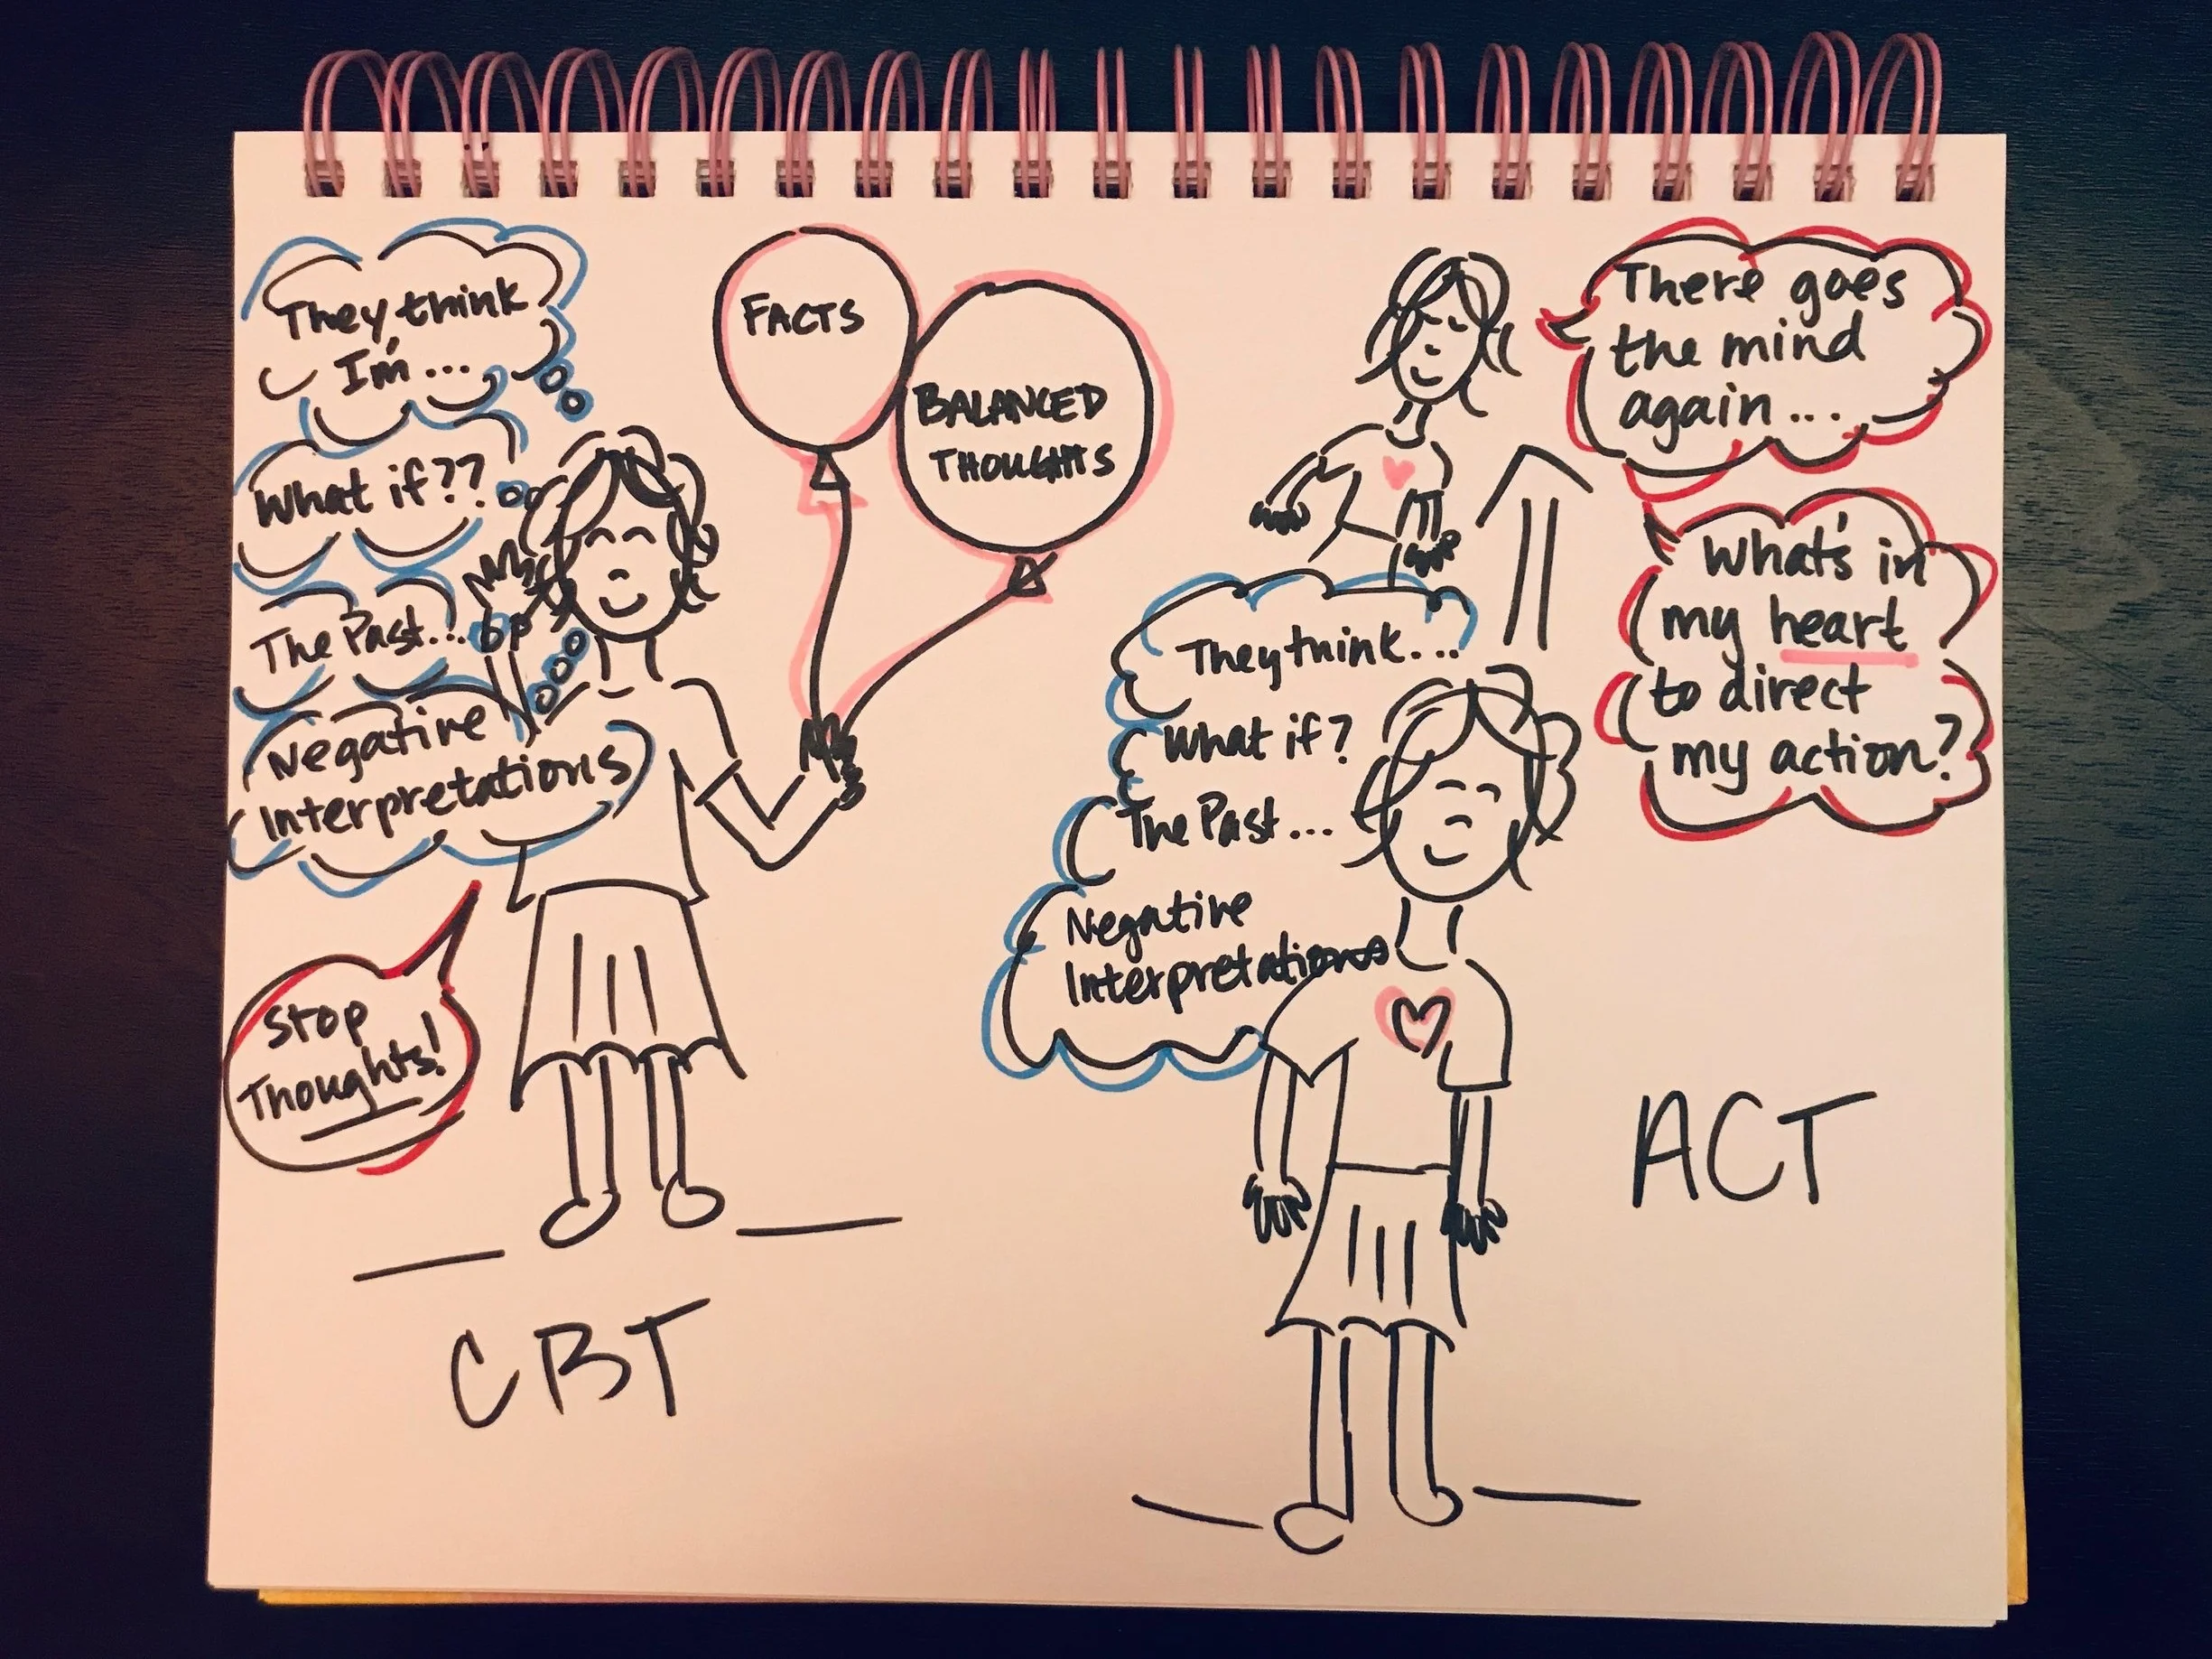 They think
I'm...
What if??
The Past...
Negative
Interpretations
Stop
Thoughts!
FACTS
BALANCED
THOUGHTS
CBT
There goes
the mind
again...
What's in
my heart
to direct
my action?
They think...
What if?
The Past...
Negative
Interpretations
ACT